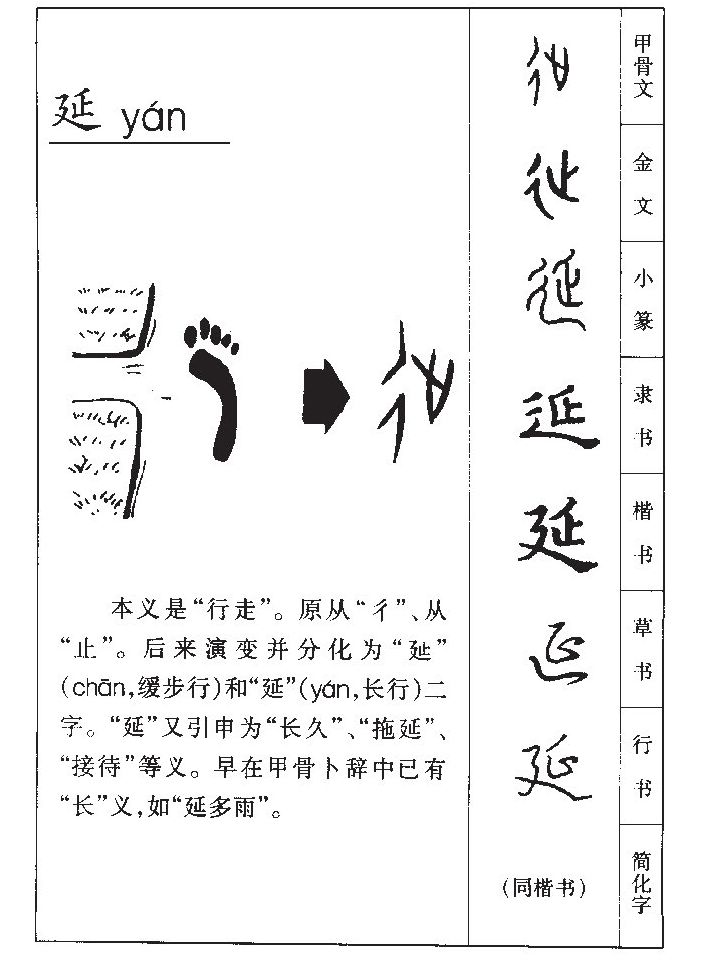 延 yán
本义是“行走”。原从“彳”、从
“止”。后来演变并分化为“延”
(chān,缓步行)和“延”(yán,长行)二
字。“延”又引申为“长久”、“拖延”、
“接待”等义。早在甲骨卜辞中已有
“长”义,如“延多雨”。
甲骨文
金文
小篆
延
隶书
延
楷书
延
草书
延
行书
延
简化字
(同楷书)